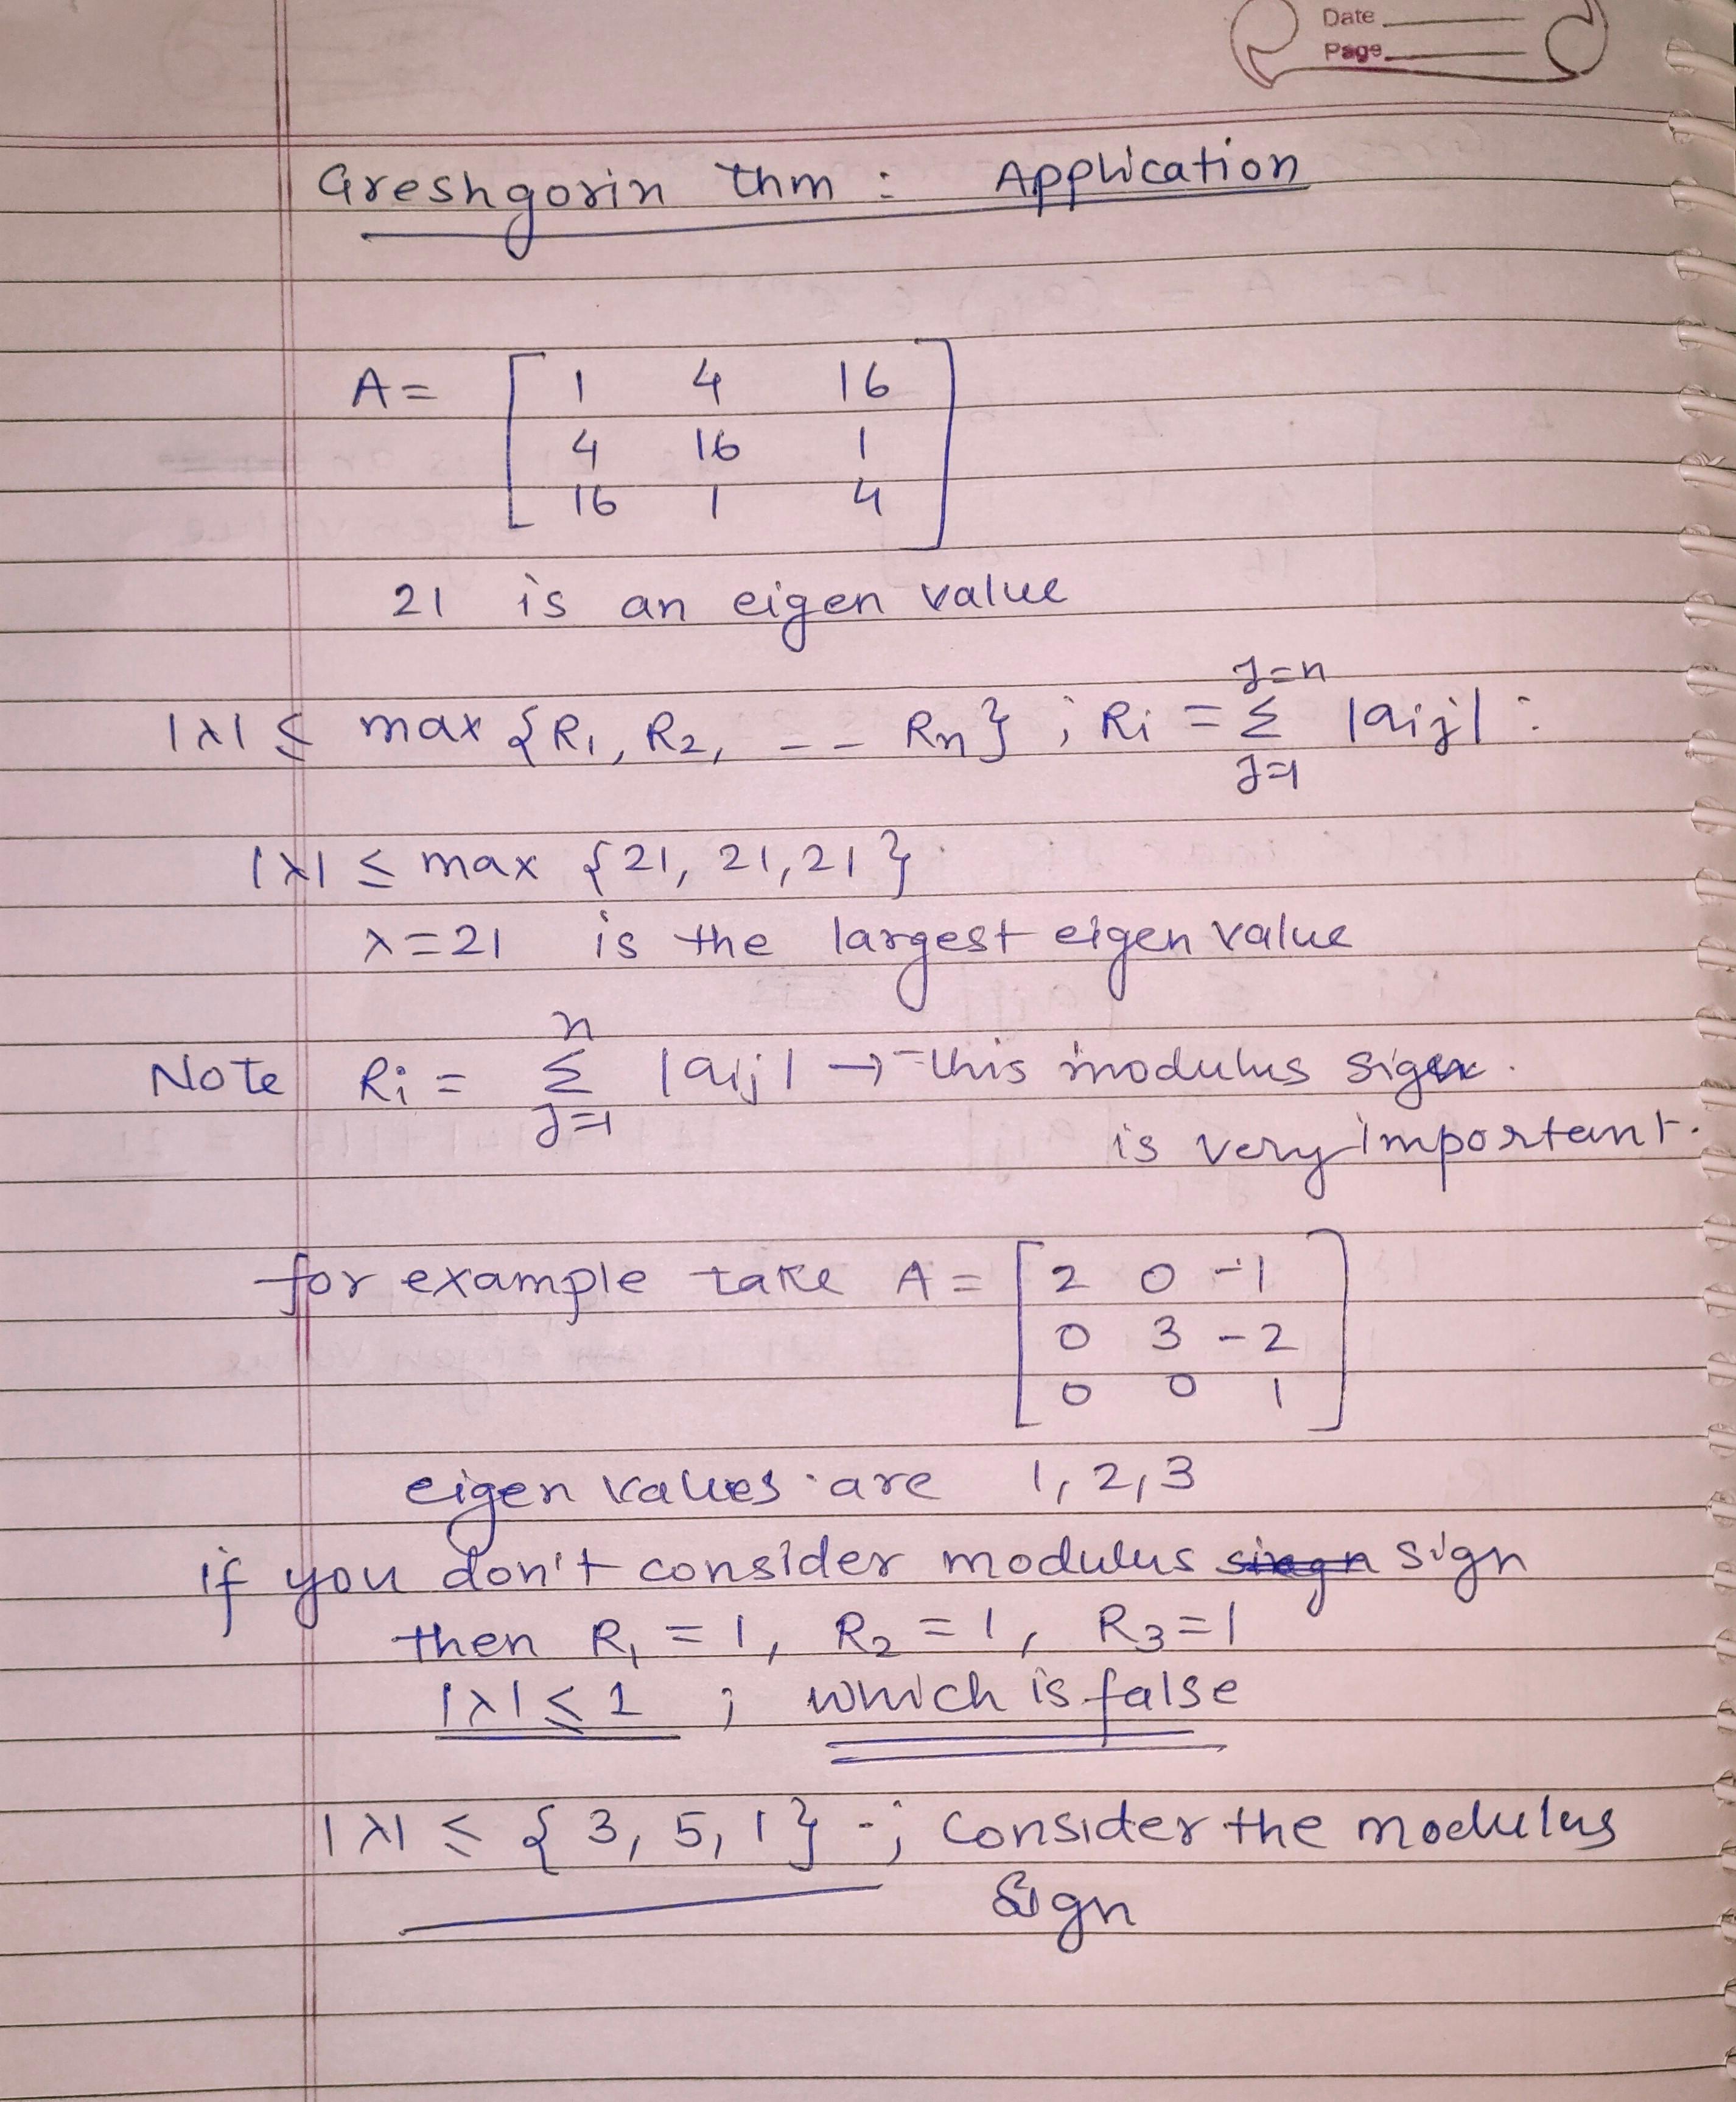 Date
Page
Greshgorin thm : Application
A = [ 1 4 16
4 16 1
16 1 4 ]
21 is an eigen value
|λ| ≤ max {R₁, R₂, -- Rn} ; Ri = Σ_{j=1}^{j=n} |aij| :
|λ| ≤ max {21, 21, 21}
λ = 21 is the largest eigen value
Note Ri = Σ_{j=1}^{n} |aij| → this modulus sign
is very important.
for example take A = [ 2 0 -1
0 3 -2
0 0 1 ]
eigen values are 1, 2, 3
if you don't consider modulus sign
then R₁ = 1, R₂ = 1, R₃ = 1
|λ| ≤ 1 ; which is false
|λ| ≤ {3, 5, 1} -; consider the modulus
Sign